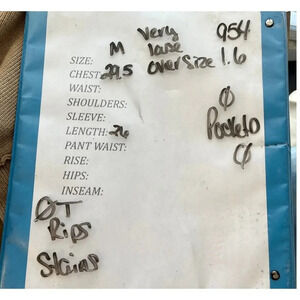 Very 954
SIZE: M lase
CHEST: 29.5 OverSize 1.6
WAIST:
SHOULDERS: Ø
SLEEVE:
LENGTH: 26 Pocket
PANT WAIST:
RISE:
HIPS:
INSEAM:
ØT
Rips
Stains